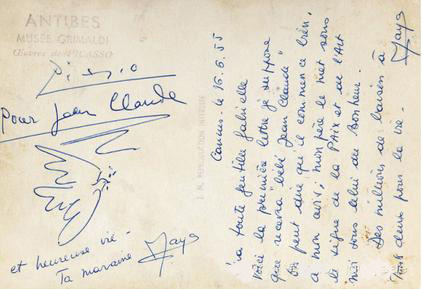 ANTIBES
MUSÉE GRIMALDI
Œuvres de PICASSO
Picasso
Pour Jean Claude
et heureuse vie -
Ta marraine Maya
Cannes - le 16.6.55
La toute gentille Gabrielle
Voici la première lettre je suppose
que recevra bébé "Jean Claude"
On peut dire qu'il commence bien,
a mon avis; mon père le met sous
le signe de la Paix et de l'Art
moi sous celui du Bonheur.
Des milliers de baisers à
Tous deux pour la vie -
Maya